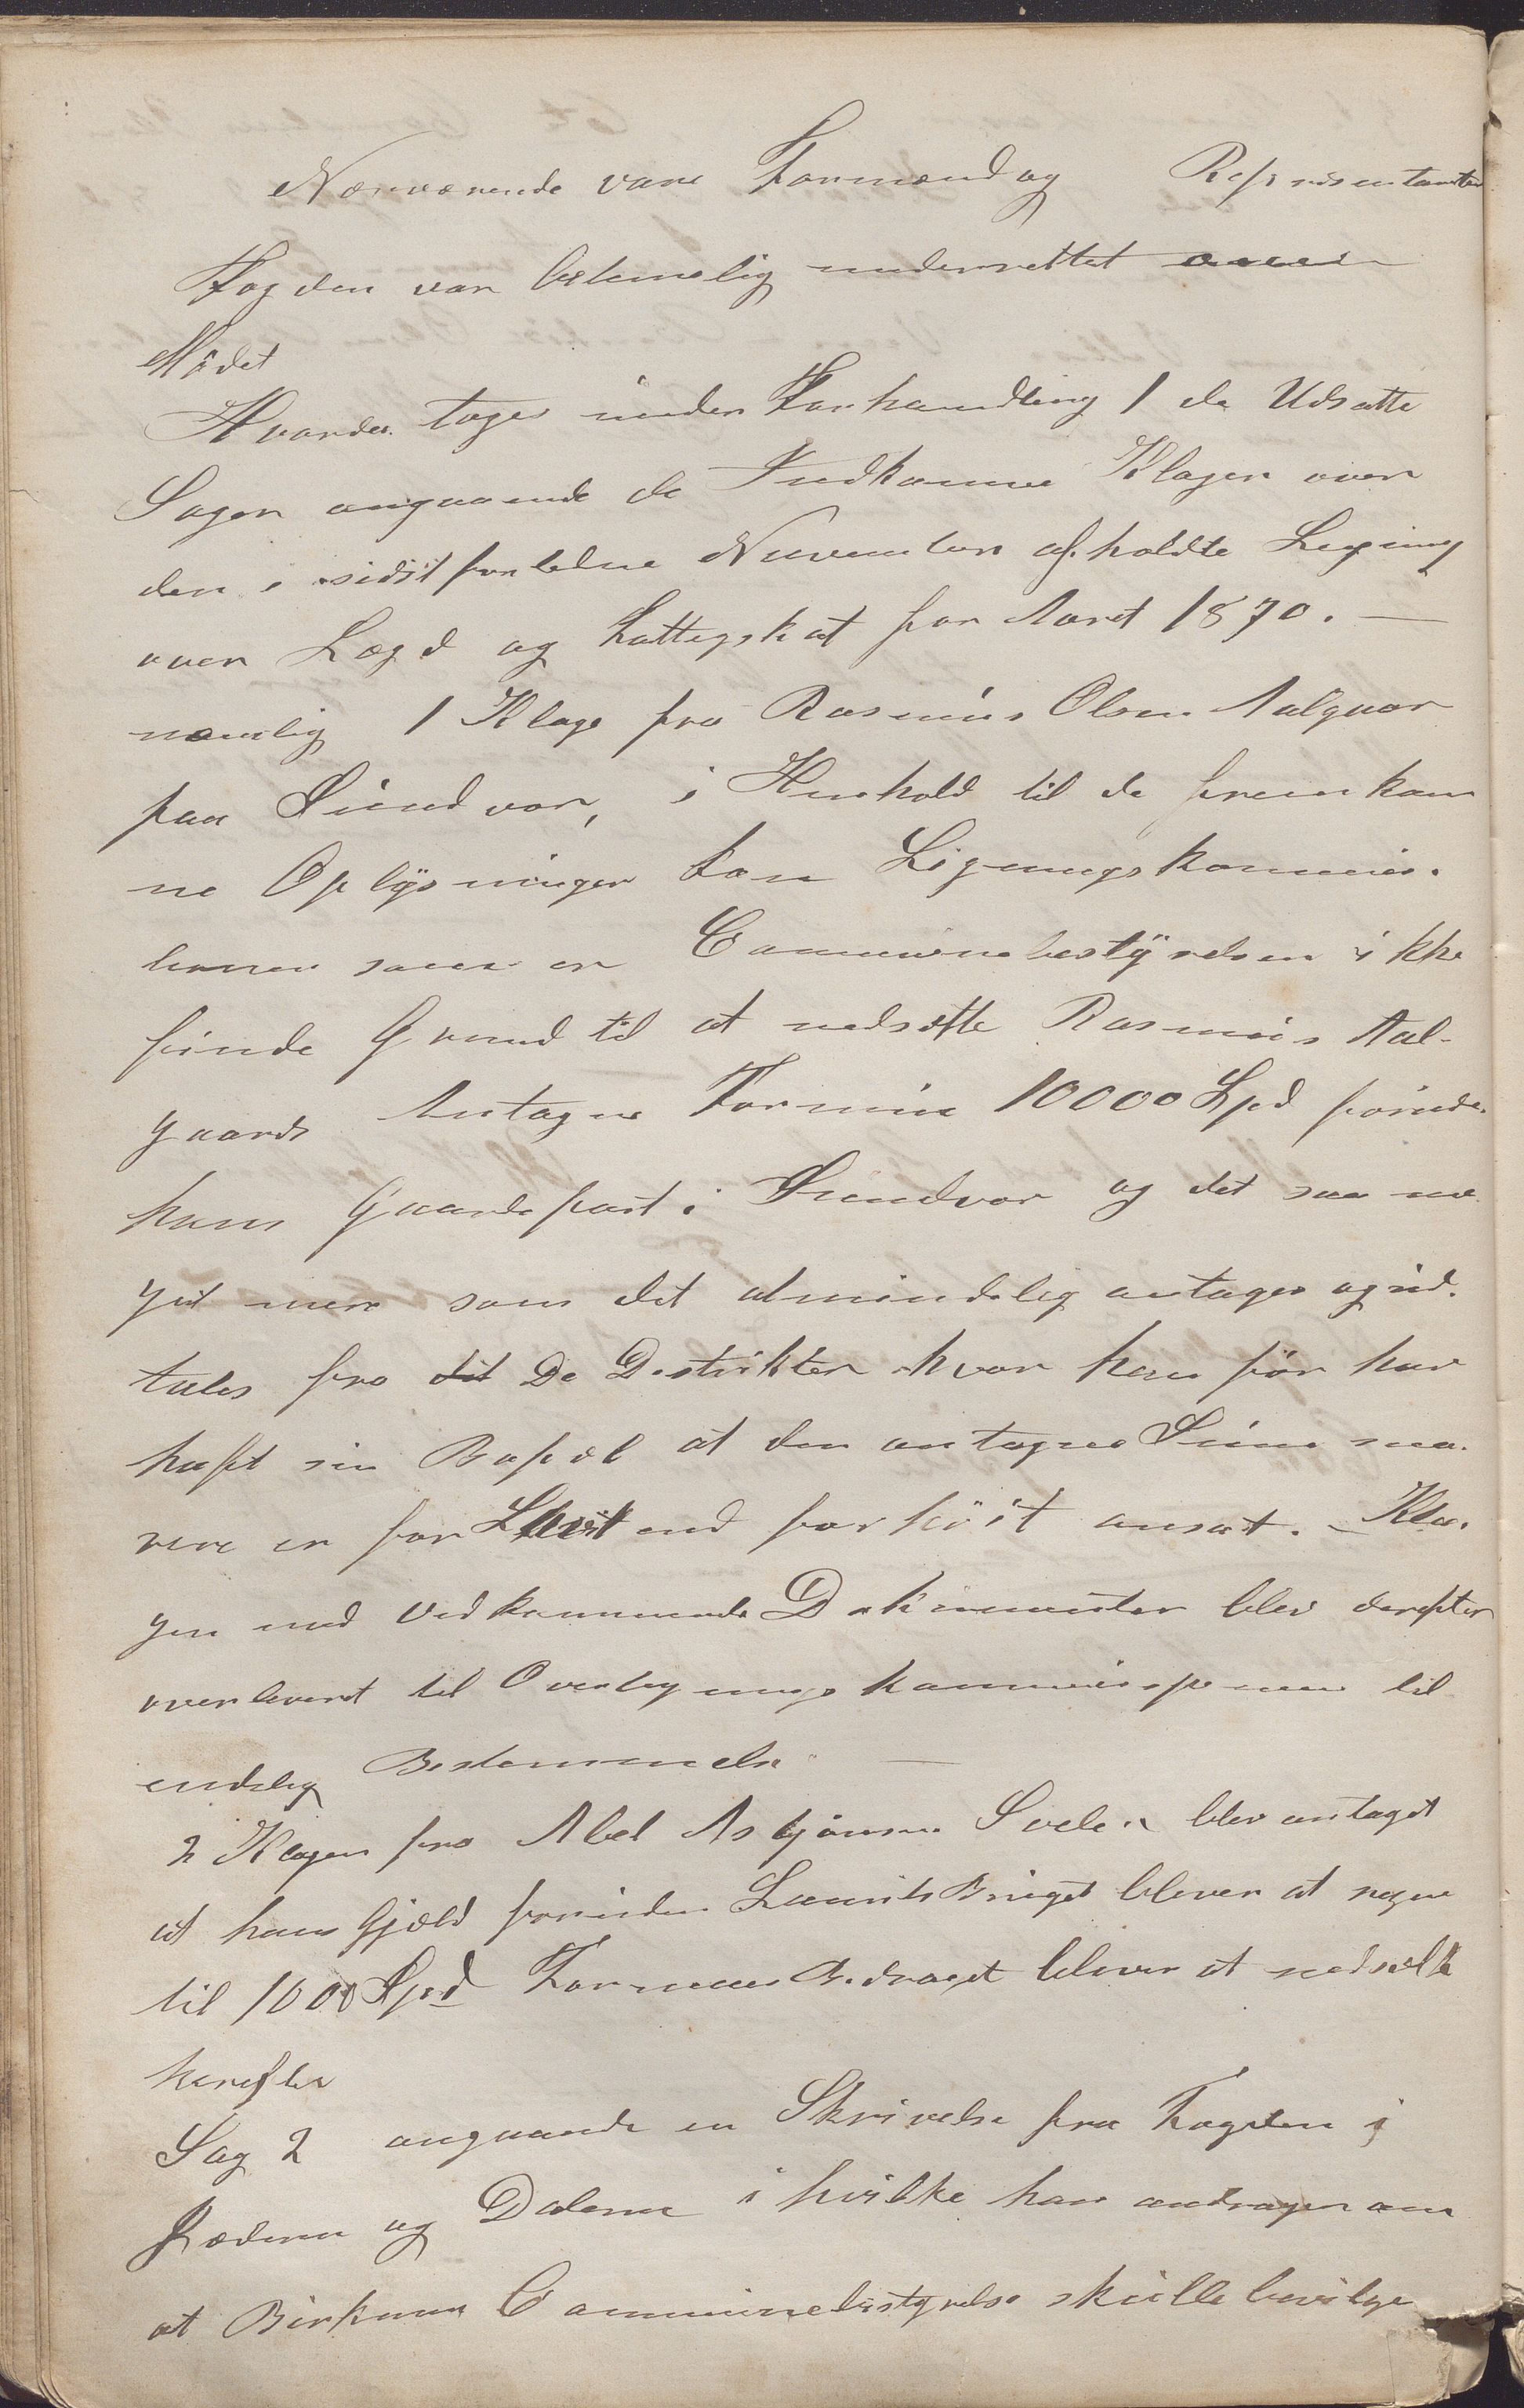 Nærværende vare Formænd og Repræsentanter
Fogden var betimelig underrettet
Mødet
Hvorda toges under Forhandling 1 de Udsatte
Sager angaaende de Indkomne Klager over
den i sidstforledne November afholdte Ligning
over Lægd og Fattigskat for Aaret 1870. —
nemlig 1 Klage fra Rasmus Olsen Aalgaar
paa Sundvor, i Henhold til de fremkom
ne Oplysninger kan Ligningskommis.
sionen som er Communebestyrelsen ikke
finde Grund til at nedsette Rasmus Aal-
gaards Antagne Formue 10000 Spd foruden
hans Gaardspart i Sundvor og det saa me
get mere som det almindelig antages og ud.
tales fra De Destrikter hvor han før har
haft sin Bopæl at den antagne Sum sna.
rere er for Lavt end for høit ansat. – Kla.
gen med Vedkommende Dokumenter blev derefter
overleveret til Overligningskommissionen til
endelig Bestemmelse —
2 Klagen fra Abel Asbjørnsen Svele blev antaget
at hans Gjeld foruden Laurits Bruget bliver at regne
til 1000 Spd Formues Bedraget bliver at nedsætte
herefter
Sag 2 angaaende en Skrivelse fra Fogden i
Jæderen og Dalerne i hvilke han andrager om
at Birkrem Communebestyrelse skulle bevilge